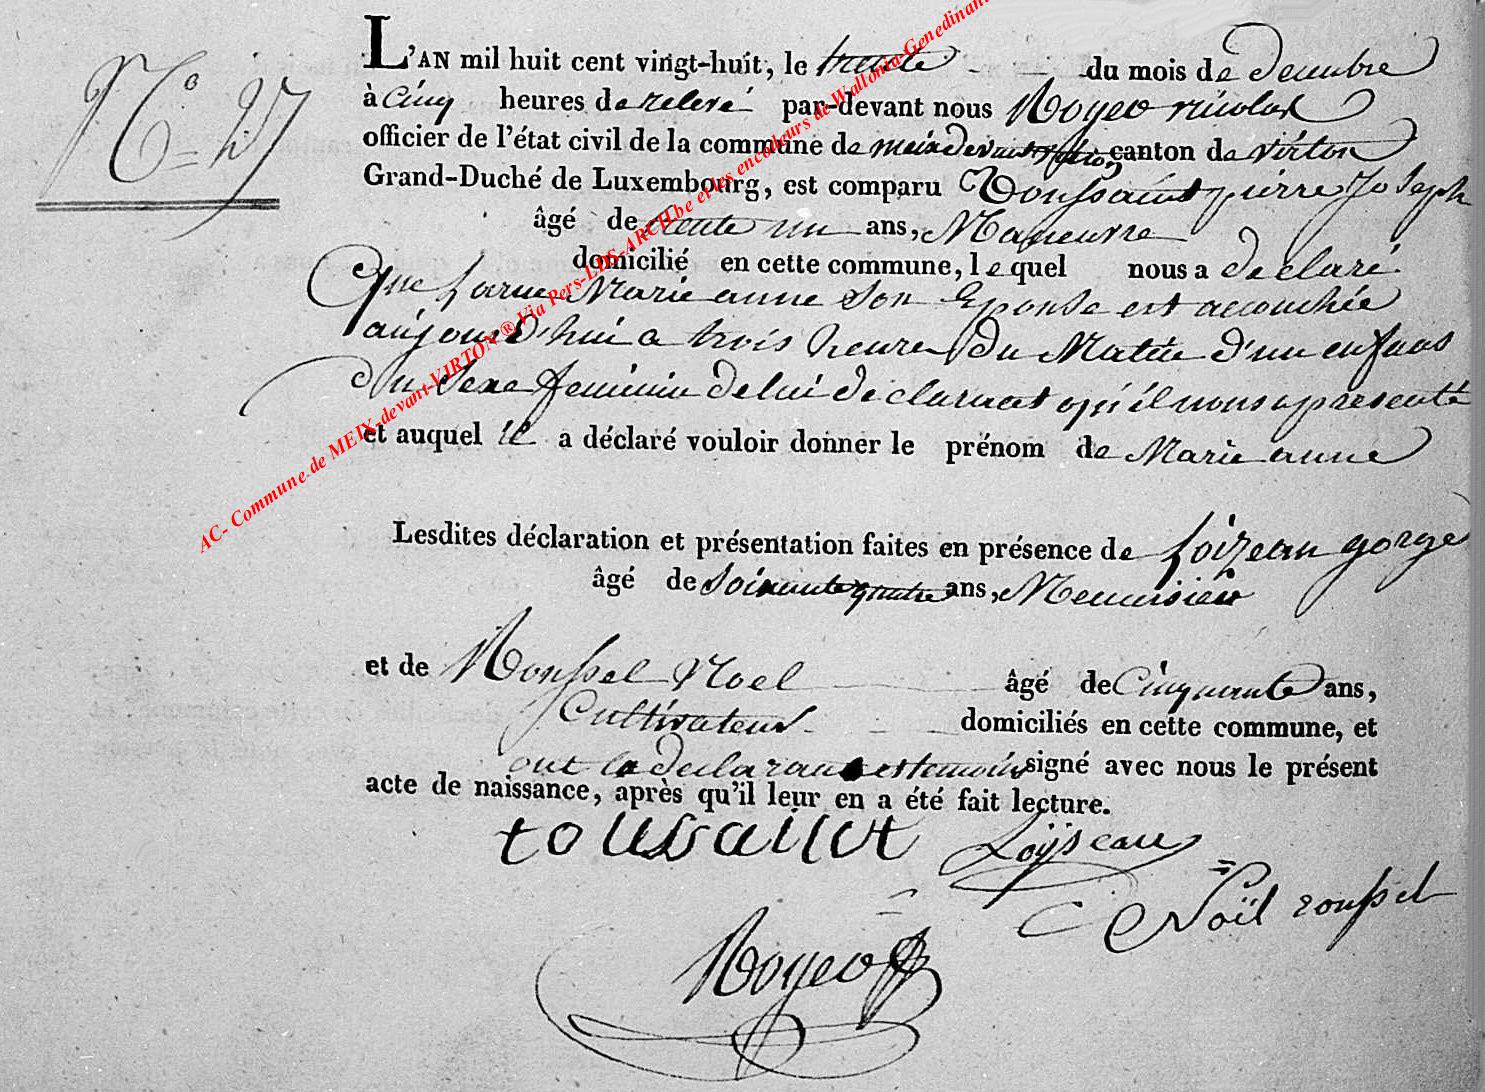 N.° 27
L'AN mil huit cent vingt-huit, le trente du mois de decembre
à cinq heures de relevé par-devant nous Royer nicolas
officier de l'état civil de la commune de meix devant virton canton de virton
Grand-Duché de Luxembourg, est comparu Toussaint pierre Joseph
âgé de trente un ans, Maneuvre
domicilié en cette commune, lequel nous a declaré
Que Marie anne son Epouse est accouchée
aujourd'hui a trois heures du Matin d'un enfant
du sexe feminin de lui declarant qu'il nous a presenté
et auquel il a déclaré vouloir donner le prénom de Marie anne
Lesdites déclaration et présentation faites en présence de Loizeau gorge
âgé de soixante quatre ans, Menuisier
et de Roussel Noel âgé de Cinquante ans,
Cultivateur domiciliés en cette commune, et
ont le declarant et temoins signé avec nous le présent
acte de naissance, après qu'il leur en a été fait lecture.
toussaint Loÿseau
Noël roussel
Royer
AC- Commune de MEIX-devant-VIRTON ® Via Pers-LDS-ARCH.be et les encodeurs de Wallonia-Genedinant